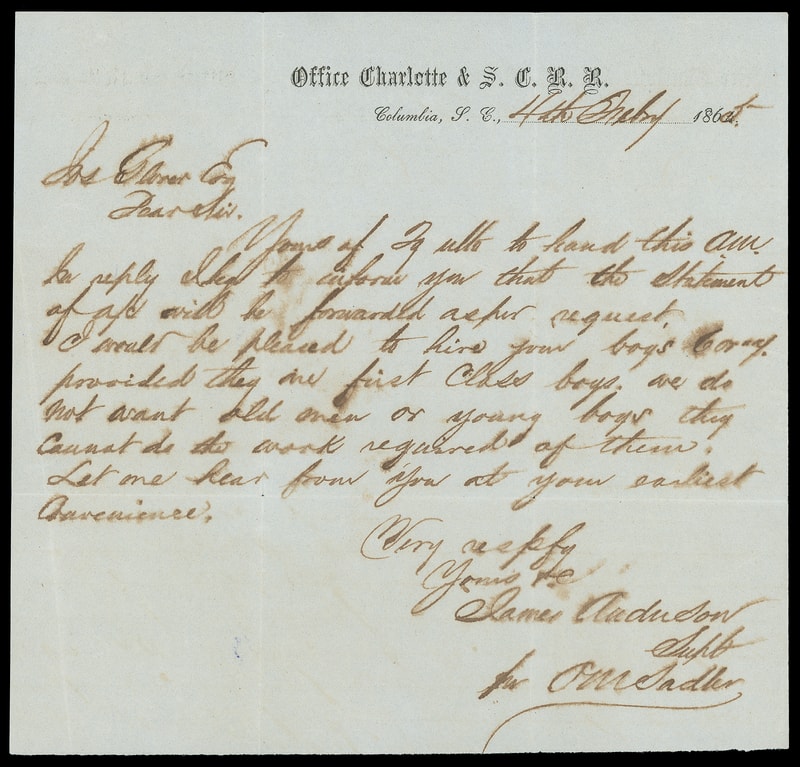 Office Charlotte & S. C. R. R.
Columbia, S. C., 4th Feby 186
Jos Glover Esq
Dear Sir.
Yours of 29 ulto to hand this AM.
In reply I beg to inform you that the Statement
of a/c will be forwarded as per request.
I would be pleased to hire your boys
provided they are first Class boys. we do
not want old men or young boys they
Cannot do the work required of them.
Let me hear from you at your earliest
Convenience.
Very respfy
Yours &c
James Anderson
Supt
per O M Sadler